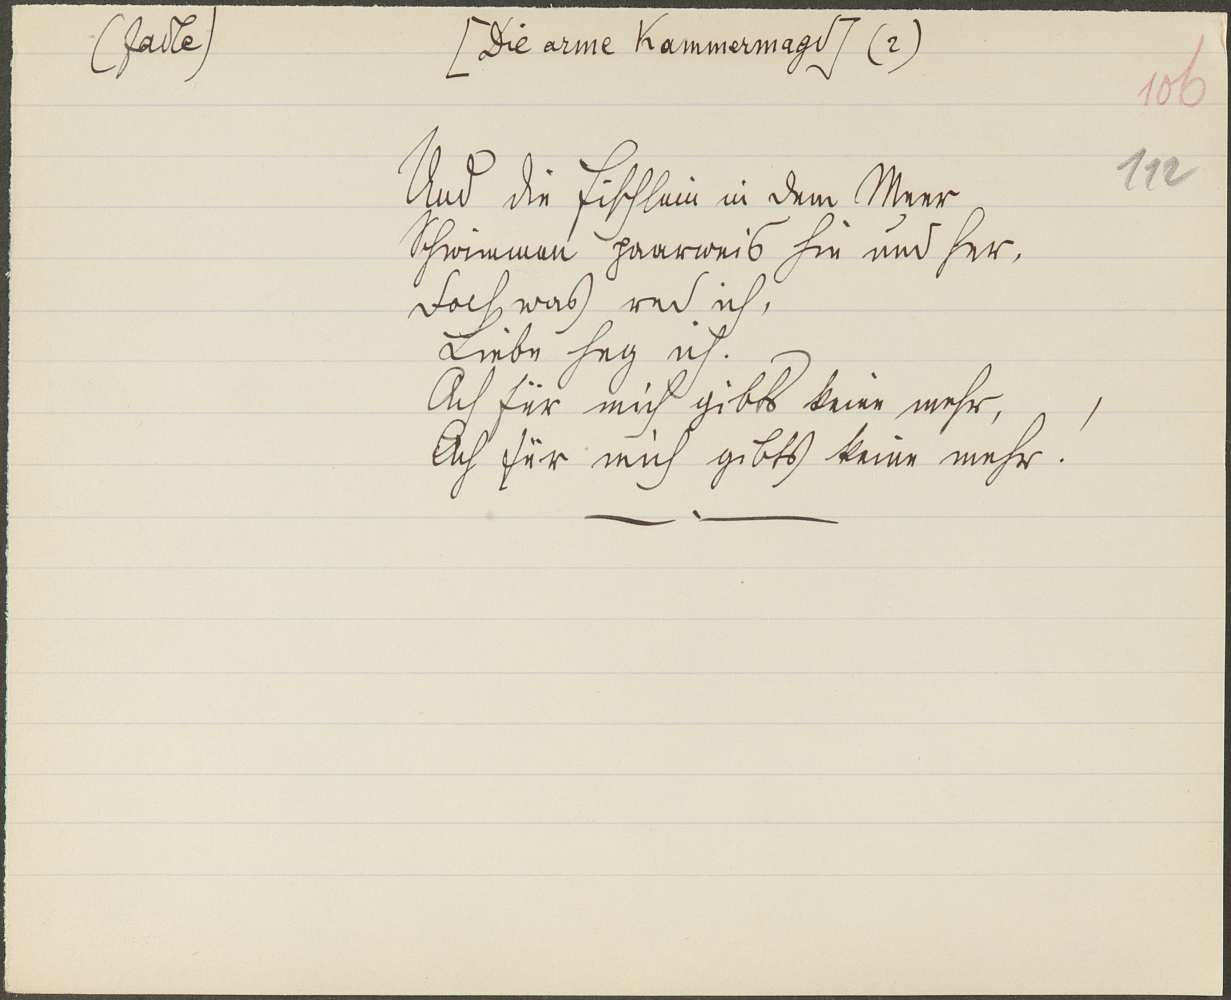 (Jadle) [Die arme Kammermagd] (2)
106
112
Und die Fischlein in dem Meer
Schwimmen paarweis hin und her,
Doch was red ich,
Liebe heg ich.
Ach für mich gibts keine mehr,
Ach für mich gibts keine mehr!